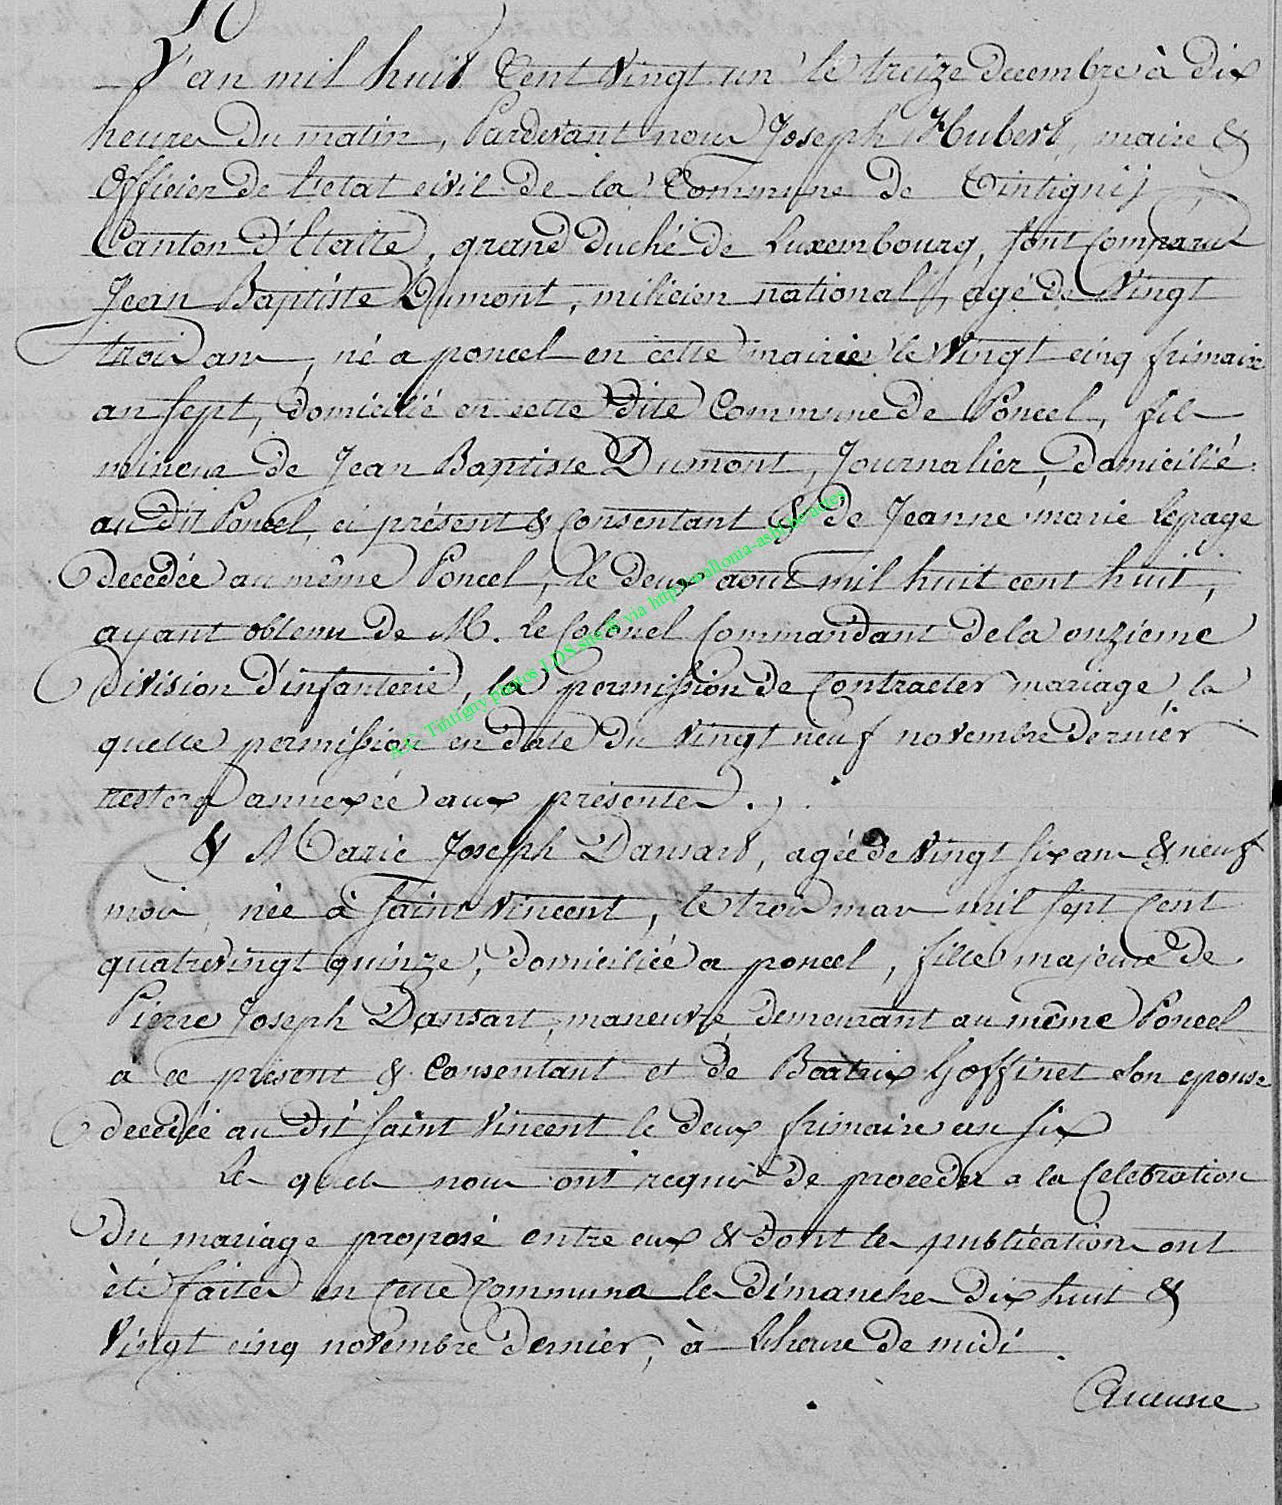 L'an mil huit Cent Vingt un le treize decembre à dix
heures Du matin, Pardevant nous Joseph Hubert, maire &
Officier de l'etat civil de la Commune de Tintignij
Canton d'Etalle, grand duché de Luxembourg, sont Comparus
Jean Baptiste Dumont, milicien national, agé de Vingt
trois ans, né a poncel en cette mairie le Vingt cinq frimaire
an sept, domicilié en cette dite Commune de Poncel, fils
mineur de Jean Baptiste Dumont, Journalier, domicilié
au dit Poncel, ci présent & Consentant & de Jeanne marie Lepage
decedée au même Poncel, le deux aout mil huit cent huit,
ayant obtenu de M. Le Colonel Commandant de la onzieme
division d'infanterie, la permission de Contracter mariage, la
quelle permission en date du Vingt neuf novembre dernier
restera annexée aux présentes.
& Marie Joseph Dansart, agée de Vingt six ans & neuf
mois, née à Saint Vincent, le trois mars mil sept Cent
quatrevingt quinze, domiciliée a poncel, fille majeure de
Pierre Joseph Dansart, maneuvre, demeurant au même Poncel
à ce présent & Consentant et de Beatrix Goffinet son epouse
decedée au dit Saint Vincent le deux frimaire an six
Les quels nous ont requis de proceder a la Celebration
Du mariage proposé entre eux & dont les publications ont
été faites en Cette Commune les dimanches dix huit &
Vingt cinq novembre dernier, à L'heure de midi.
Aucune
A.C. Tintigny photos LDS site & via http://wallonia-asbl.be/actes